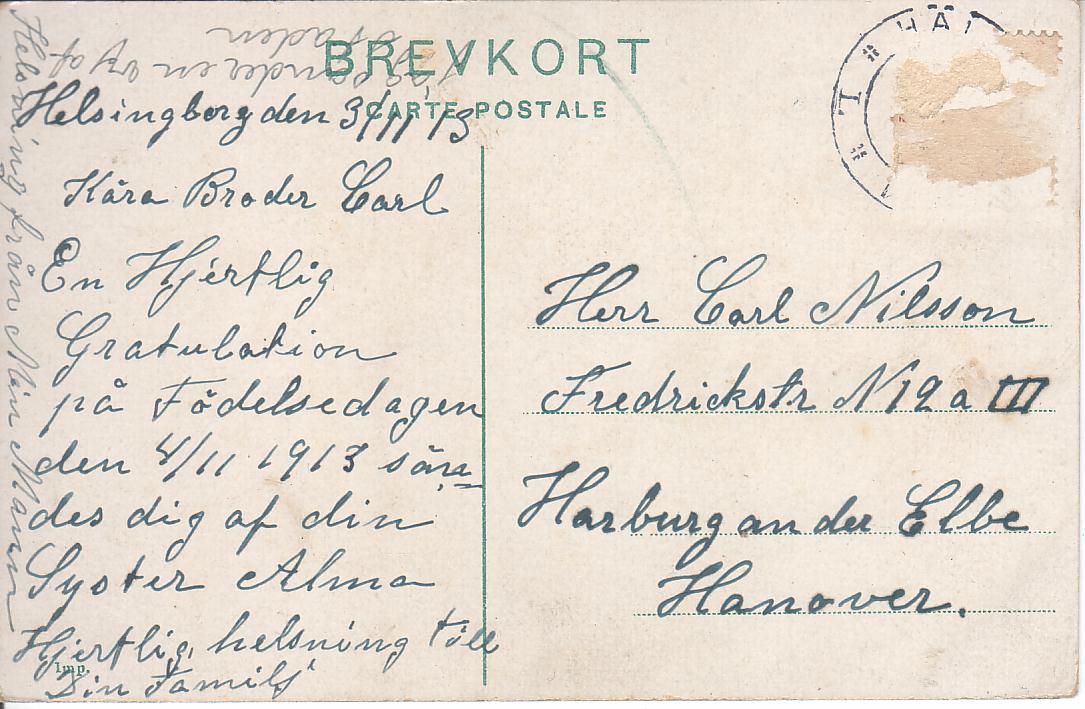 BREVKORT
CARTE POSTALE
Helsingborg den 3/11 13
Kära Broder Carl
En Hjertlig
Gratulation
på Födelsedagen
den 4/11 1913
des dig af din
Syster Alma
Hjertlig helsning till
Din Familj
Imp.
Helsning från Min Mann
en vy af
staden
HÄL
Herr Carl Nilsson
Fredrickstr N 12 a III
Harburg an der Elbe
Hanover.